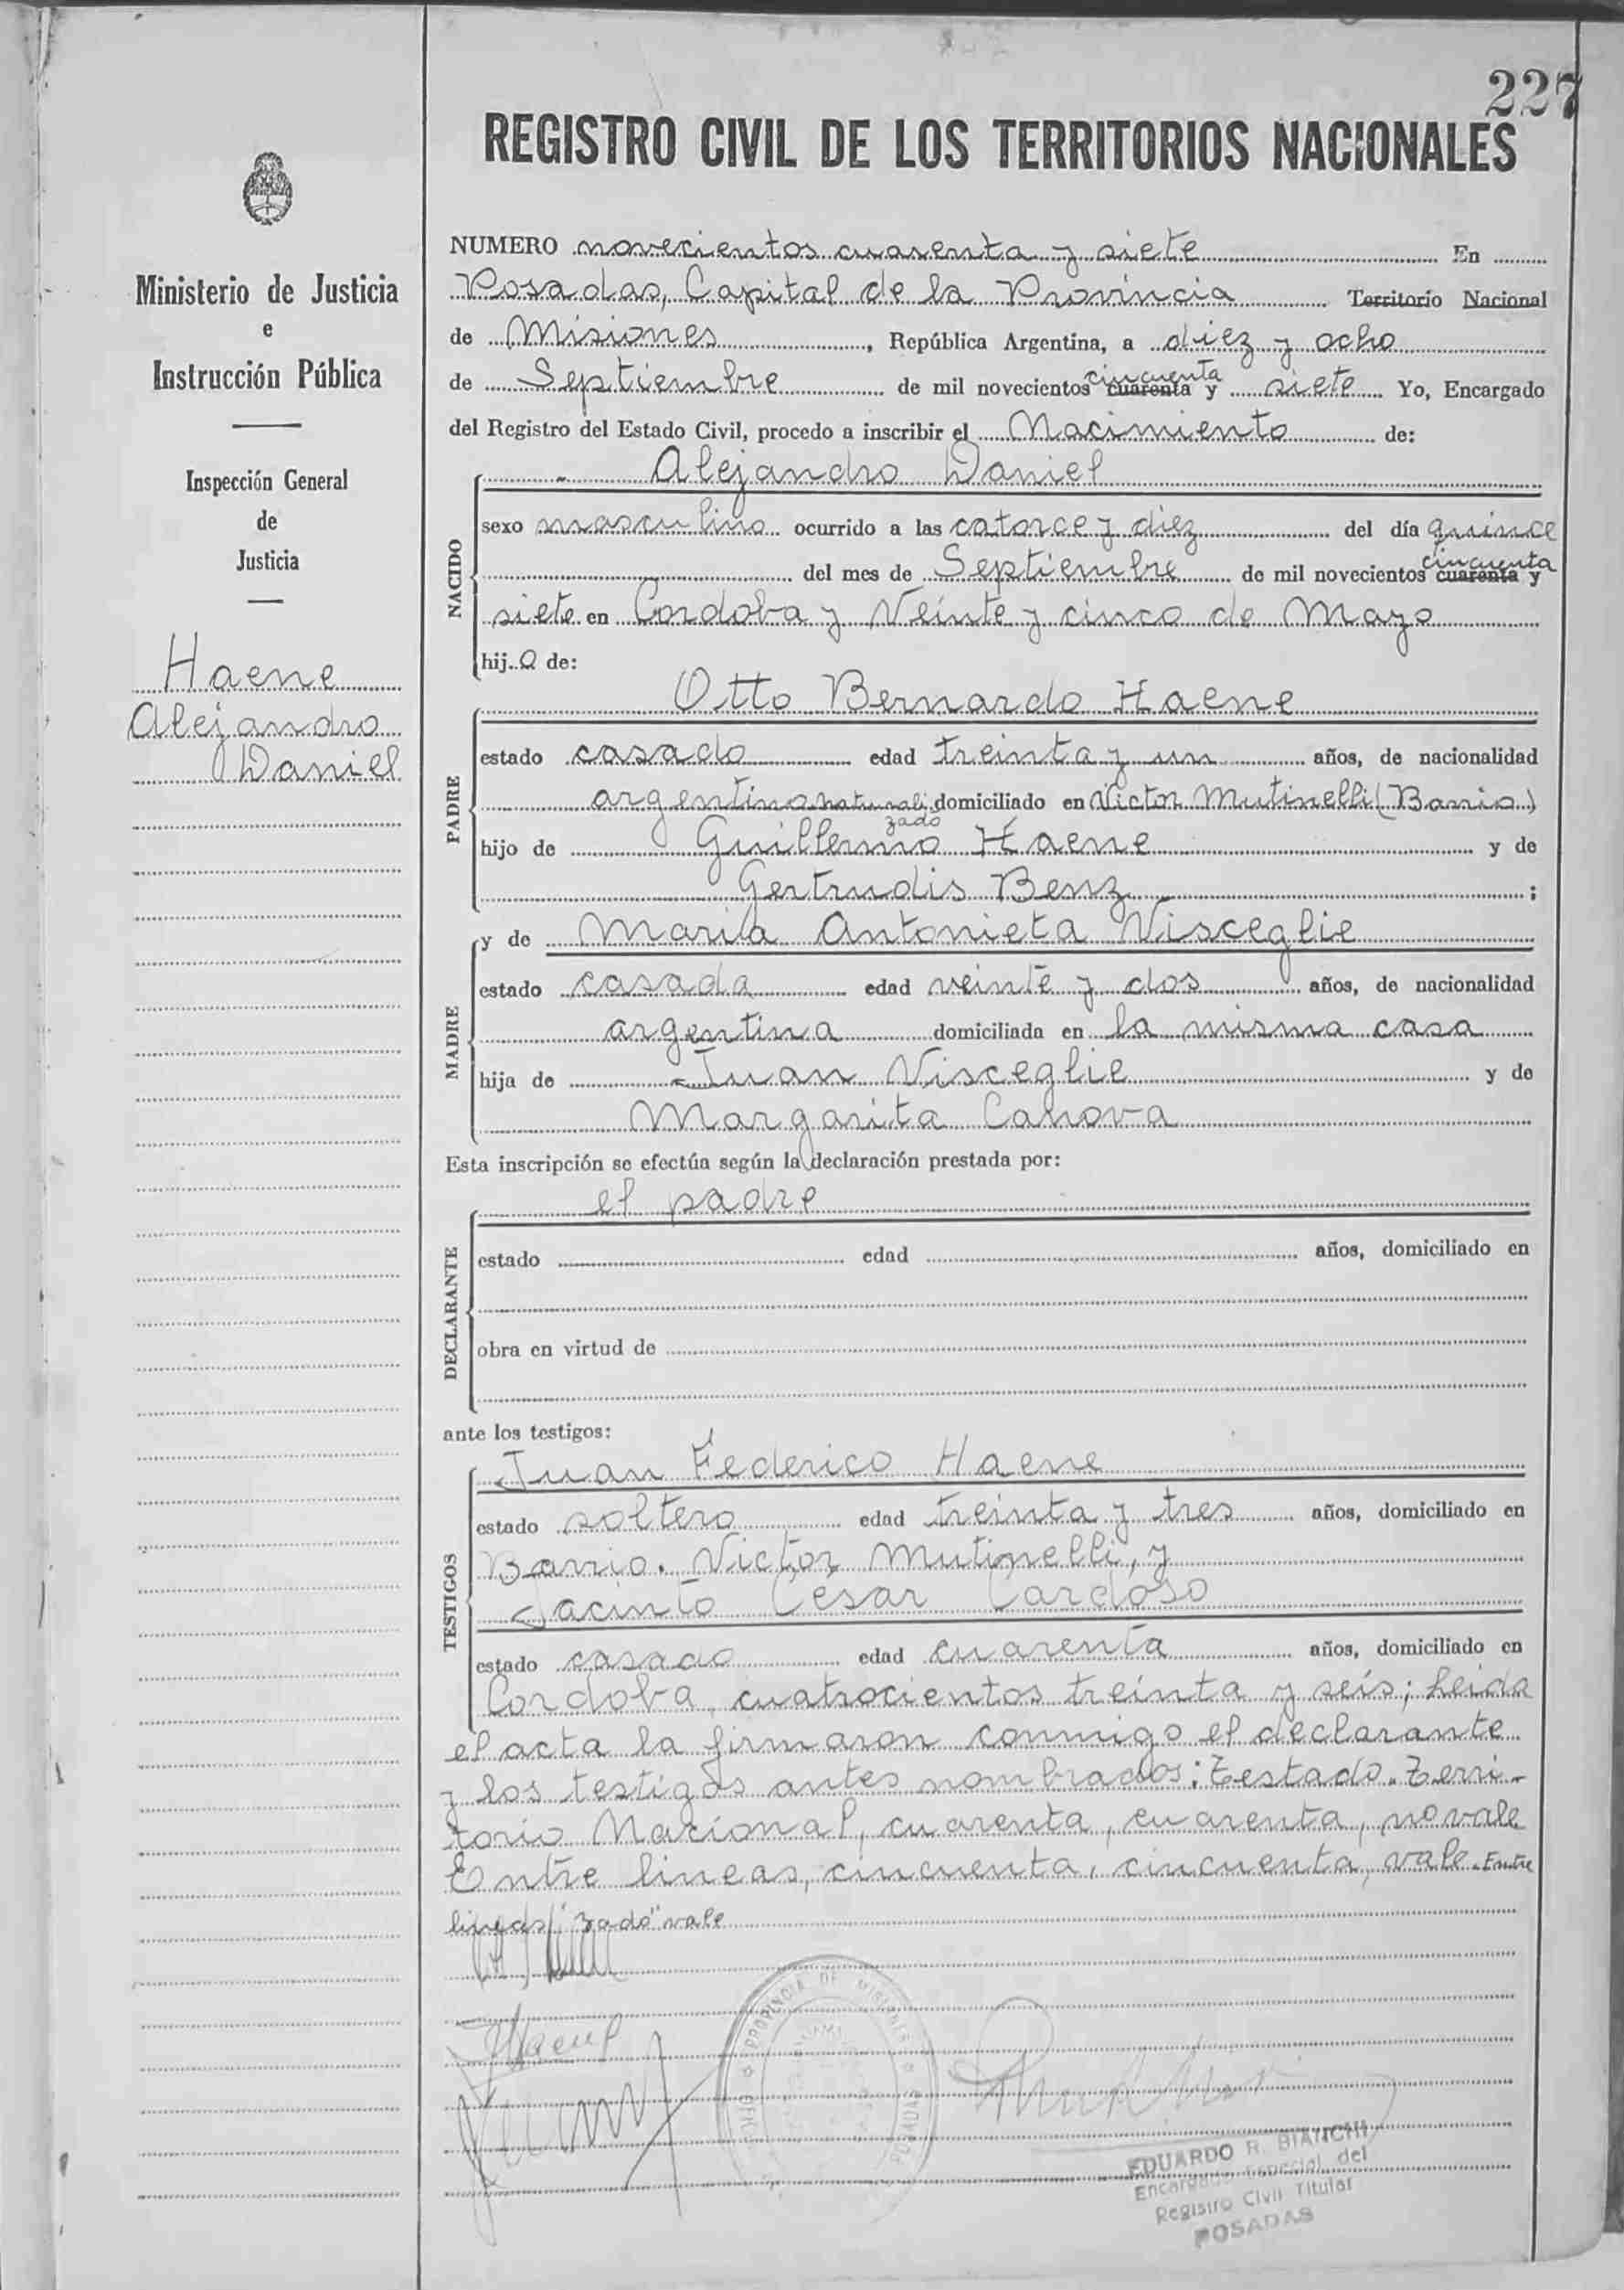 227
REGISTRO CIVIL DE LOS TERRITORIOS NACIONALES
Ministerio de Justicia
e
Instrucción Pública
Inspección General
de
Justicia
Haene
Alejandro
Daniel
NUMERO novecientos cuarenta y siete En
Posadas, Capital de la Provincia Territorio Nacional
de Misiones, República Argentina, a diez y ocho
de Septiembre de mil novecientos cuarenta cincuenta y siete Yo, Encargado
del Registro del Estado Civil, procedo a inscribir el Nacimiento de:
NACIDO
Alejandro Daniel
sexo masculino ocurrido a las catorce y diez del día quince
del mes de Septiembre de mil novecientos cuarenta cincuenta y
siete en Cordoba y Veinte y cinco de Mayo
hijo de:
PADRE
Otto Bernardo Haene
estado casado edad treinta y un años, de nacionalidad
argentino naturalizado domiciliado en Victor Mutinelli (Barrio)
hijo de Guillermo Haene y de
Gertrudis Benz;
MADRE
y de Maria Antonieta Visceglie
estado casada edad veinte y dos años, de nacionalidad
argentina domiciliada en la misma casa
hija de Juan Visceglie y de
Margarita Canova
Esta inscripción se efectúa según la declaración prestada por:
DECLARANTE
el padre
estado edad años, domiciliado en
obra en virtud de
ante los testigos:
TESTIGOS
Juan Federico Haene
estado soltero edad treinta y tres años, domiciliado en
Barrio. Victor Mutinelli, y
Jacinto César Cardoso
estado casado edad cuarenta años, domiciliado en
Cordoba cuatrocientos treinta y seis; Leida
el acta la firmaron conmigo el declarante
y los testigos antes nombrados: Testado. Terri-
torio Nacional, cuarenta, cuarenta, no vale
Entre lineas, cincuenta, cincuenta, vale. Entre
lineas "zado" vale
Haene
PROVINCIA DE MISIONES
POSADAS
EDUARDO R. BIANCHI
Encargado Especial del
Registro Civil Titular
POSADAS